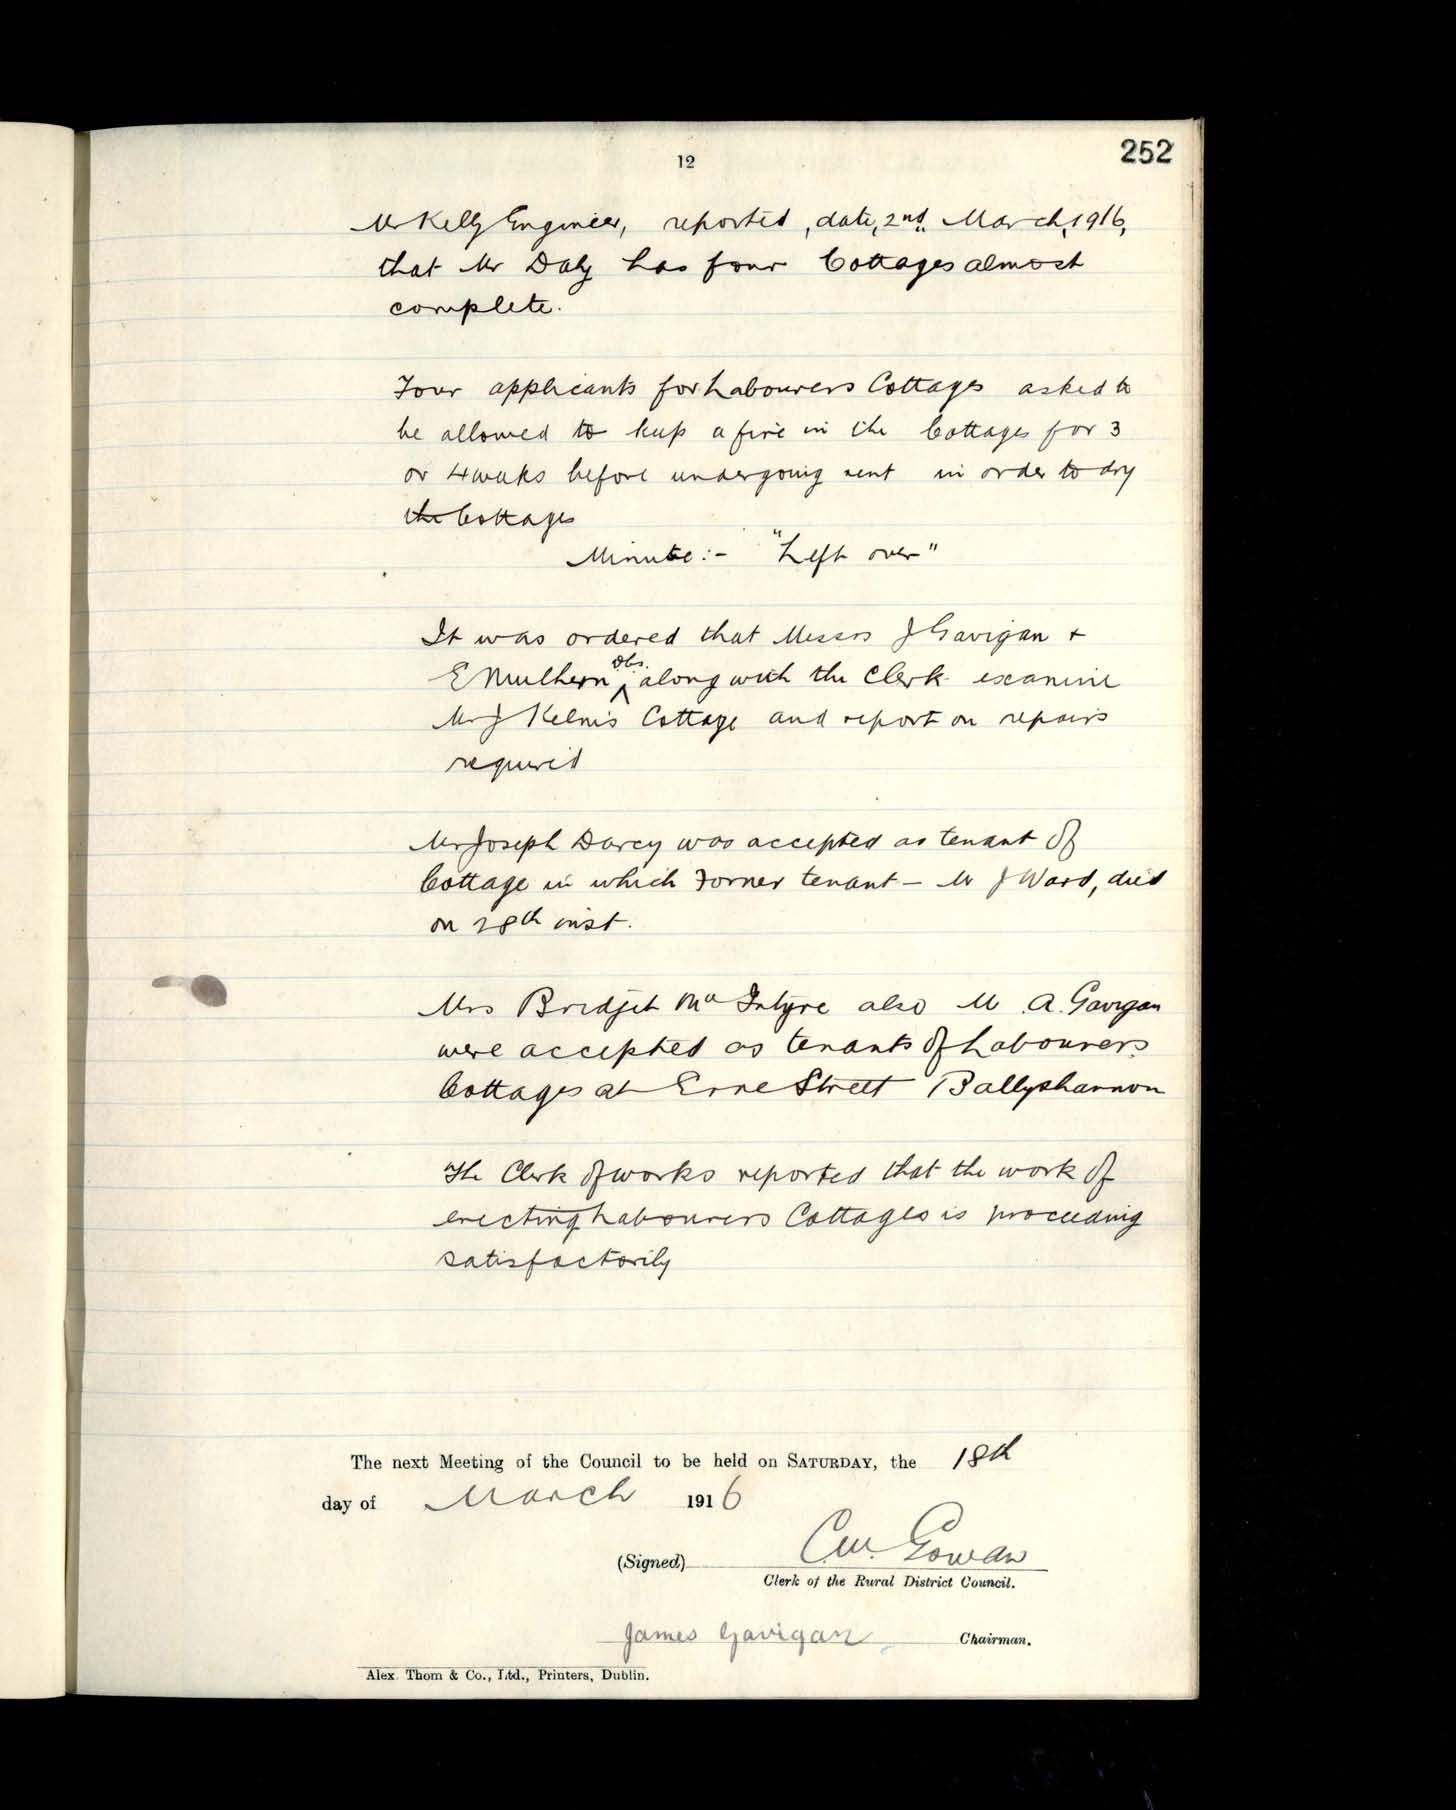 12
252
Mr Kelly Engineer, reported, date, 2nd March, 1916,
that Mr Daly has four Cottages almost
complete.
Four applicants for Labourers Cottages asked to
be allowed to keep a fire in the Cottages for 3
or 4 weeks before undergoing rent in order to dry
the Cottages
Minute:- "Left over"
It was ordered that Messrs J Gavigan +
E Mulhern Dcs. along with the Clerk examine
Mr J Cottage and report on repairs
required
Mr Joseph Darcy was accepted as tenant of
Cottage in which Former tenant — Mr J Ward, died
on 28th inst.
Mrs Bridget Mc Intyre also M A. Gavigan
were accepted as tenants of Labourers
Cottages at Erne Street Ballyshannon
The Clerk of works reported that the work of
erecting Labourers Cottages is proceeding
satisfactorily
The next Meeting of the Council to be held on SATURDAY, the 18th
day of March 1916
(Signed) Gowan
Clerk of the Rural District Council.
James Gavigan Chairman.
Alex. Thom & Co., Ltd., Printers, Dublin.